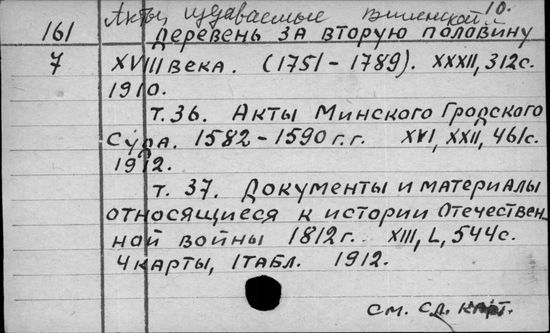 10.
Акты, издаваемые Виленской
161 деревень за вторую половину
7 XVIII века. (1751-1789). XXXII, 312с.
1910.
т.36. Акты Минского Гродского
Суда. 1582-1590 г.г. XVI, XXII, 461с.
1912.
т. 37. Документы и материалы
относящиеся к истории Отечествен
ной войны 1812г. XIII, L, 544с.
4 карты, 1 табл. 1912.
см. сл. карт.